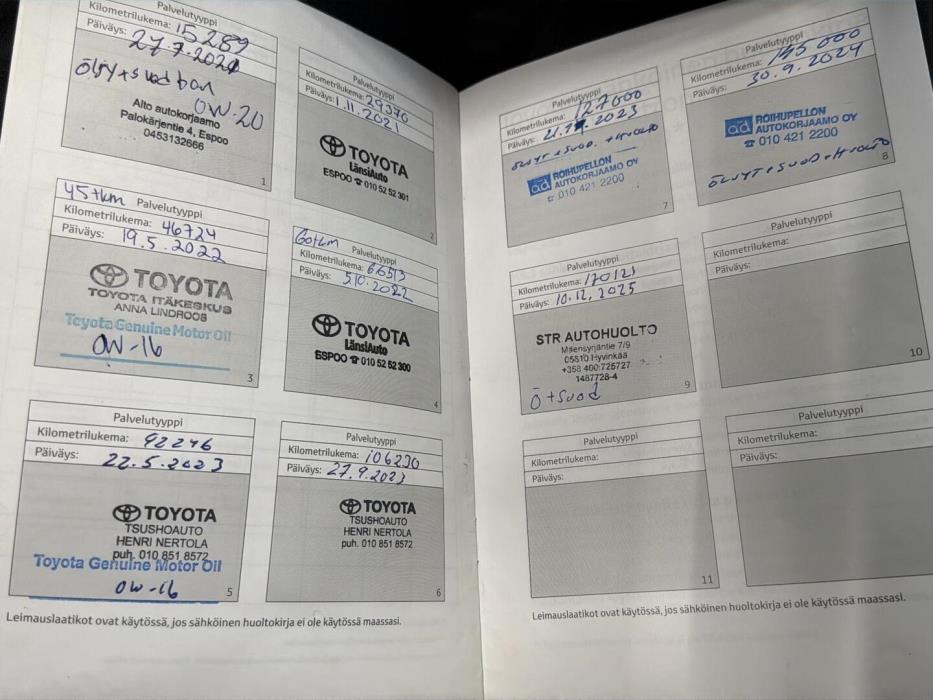 Palvelutyyppi
Kilometrilukema: 15289
Päiväys: 27.7.2020
öljy+suodban
0W-20
Alto autokorjaamo
Palokärjentie 4, Espoo
0453132666
1
Palvelutyyppi
Kilometrilukema: 29370
Päiväys: 1.11.2021
TOYOTA
LänsiAuto
ESPOO ☎ 010 52 52 301
2
45tkm Palvelutyyppi
Kilometrilukema: 46724
Päiväys: 19.5.2022
TOYOTA
TOYOTA ITÄKESKUS
ANNA LINDROOS
Toyota Genuine Motor Oil
0W-16
3
60tkm Palvelutyyppi
Kilometrilukema: 66513
Päiväys: 5.10.2022
TOYOTA
LänsiAuto
ESPOO ☎ 010 52 52 300
4
Palvelutyyppi
Kilometrilukema: 92246
Päiväys: 22.5.2023
TOYOTA
TSUSHOAUTO
HENRI NERTOLA
puh. 010 851 8572
Toyota Genuine Motor Oil
0W-16
5
Palvelutyyppi
Kilometrilukema: 106230
Päiväys: 27.9.2023
TOYOTA
TSUSHOAUTO
HENRI NERTOLA
puh. 010 851 8572
6
Leimauslaatikot ovat käytössä, jos sähköinen huoltokirja ei ole käytössä maassasi.
Palvelutyyppi
Kilometrilukema: 127000
Päiväys: 2023
ÖLJYT + SUOD. + HUOLTO
ad ROIHUPELLON
AUTOKORJAAMO OY
☎ 010 421 2200
7
Palvelutyyppi
Kilometrilukema: 145 000
Päiväys: 30.9.2024
ad ROIHUPELLON
AUTOKORJAAMO OY
☎ 010 421 2200
ÖLJYT + SUOD + HUOLTO
8
Palvelutyyppi
Kilometrilukema: 170121
Päiväys: 10.12.2025
STR AUTOHUOLTO
05810 Hyvinkää
+358 400 725727
1487728-4
Ö + Suod
9
Palvelutyyppi
Kilometrilukema:
Päiväys:
10
Palvelutyyppi
Kilometrilukema:
Päiväys:
11
Palvelutyyppi
Kilometrilukema:
Päiväys:
Leimauslaatikot ovat käytössä, jos sähköinen huoltokirja ei ole käytössä maassasi.